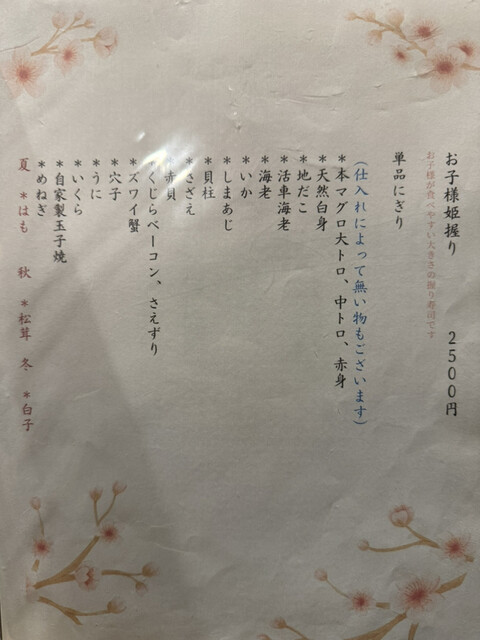 お子様姫握り 2500円
お子様が食べやすい大きさの握り寿司です
単品にぎり
(仕入れによって無い物もございます)
*本マグロ大トロ、中トロ、赤身
*天然白身
*地だこ
*活車海老
*海老
*いか
*しまあじ
*貝柱
*さざえ
*赤貝
*くじらベーコン、さえずり
*ズワイ蟹
*穴子
*うに
*いくら
*自家製玉子焼
*めねぎ
夏 *はも 秋 *松茸 冬 *白子